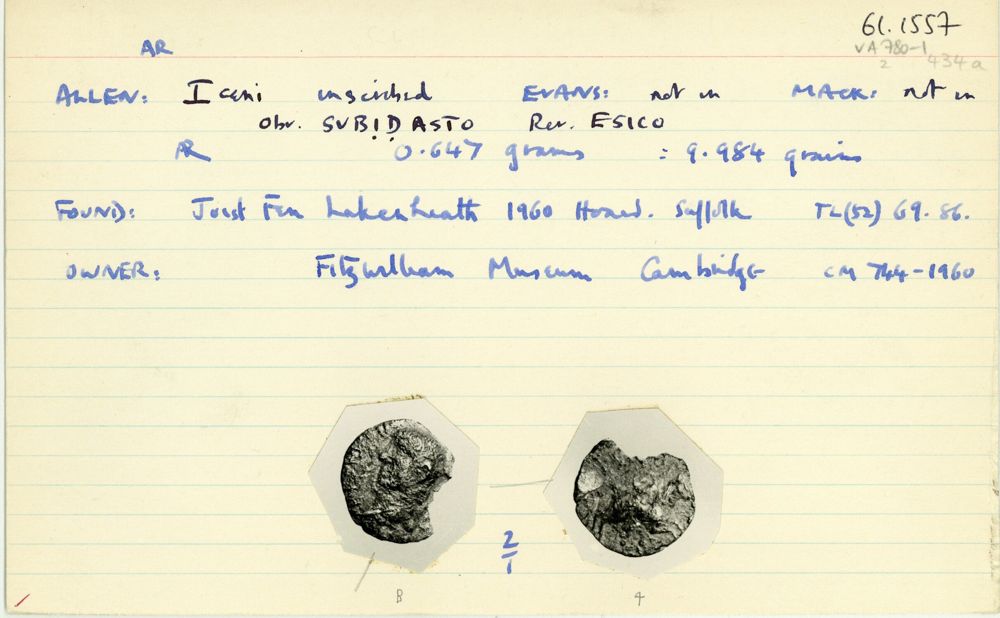 61.1557
AR VA 780-1
2 434a
ALLEN: Iceni inscribed EVANS: not in MACK: not in
Obv. SUBIDASTO Rev. ESICO
AR 0.647 grams = 9.984 grains
FOUND: Joist Fen Lakenheath 1960 Hoard. Suffolk TL(52) 69.86.
OWNER: Fitzwilliam Museum Cambridge CM 744-1960
2
1
8 4